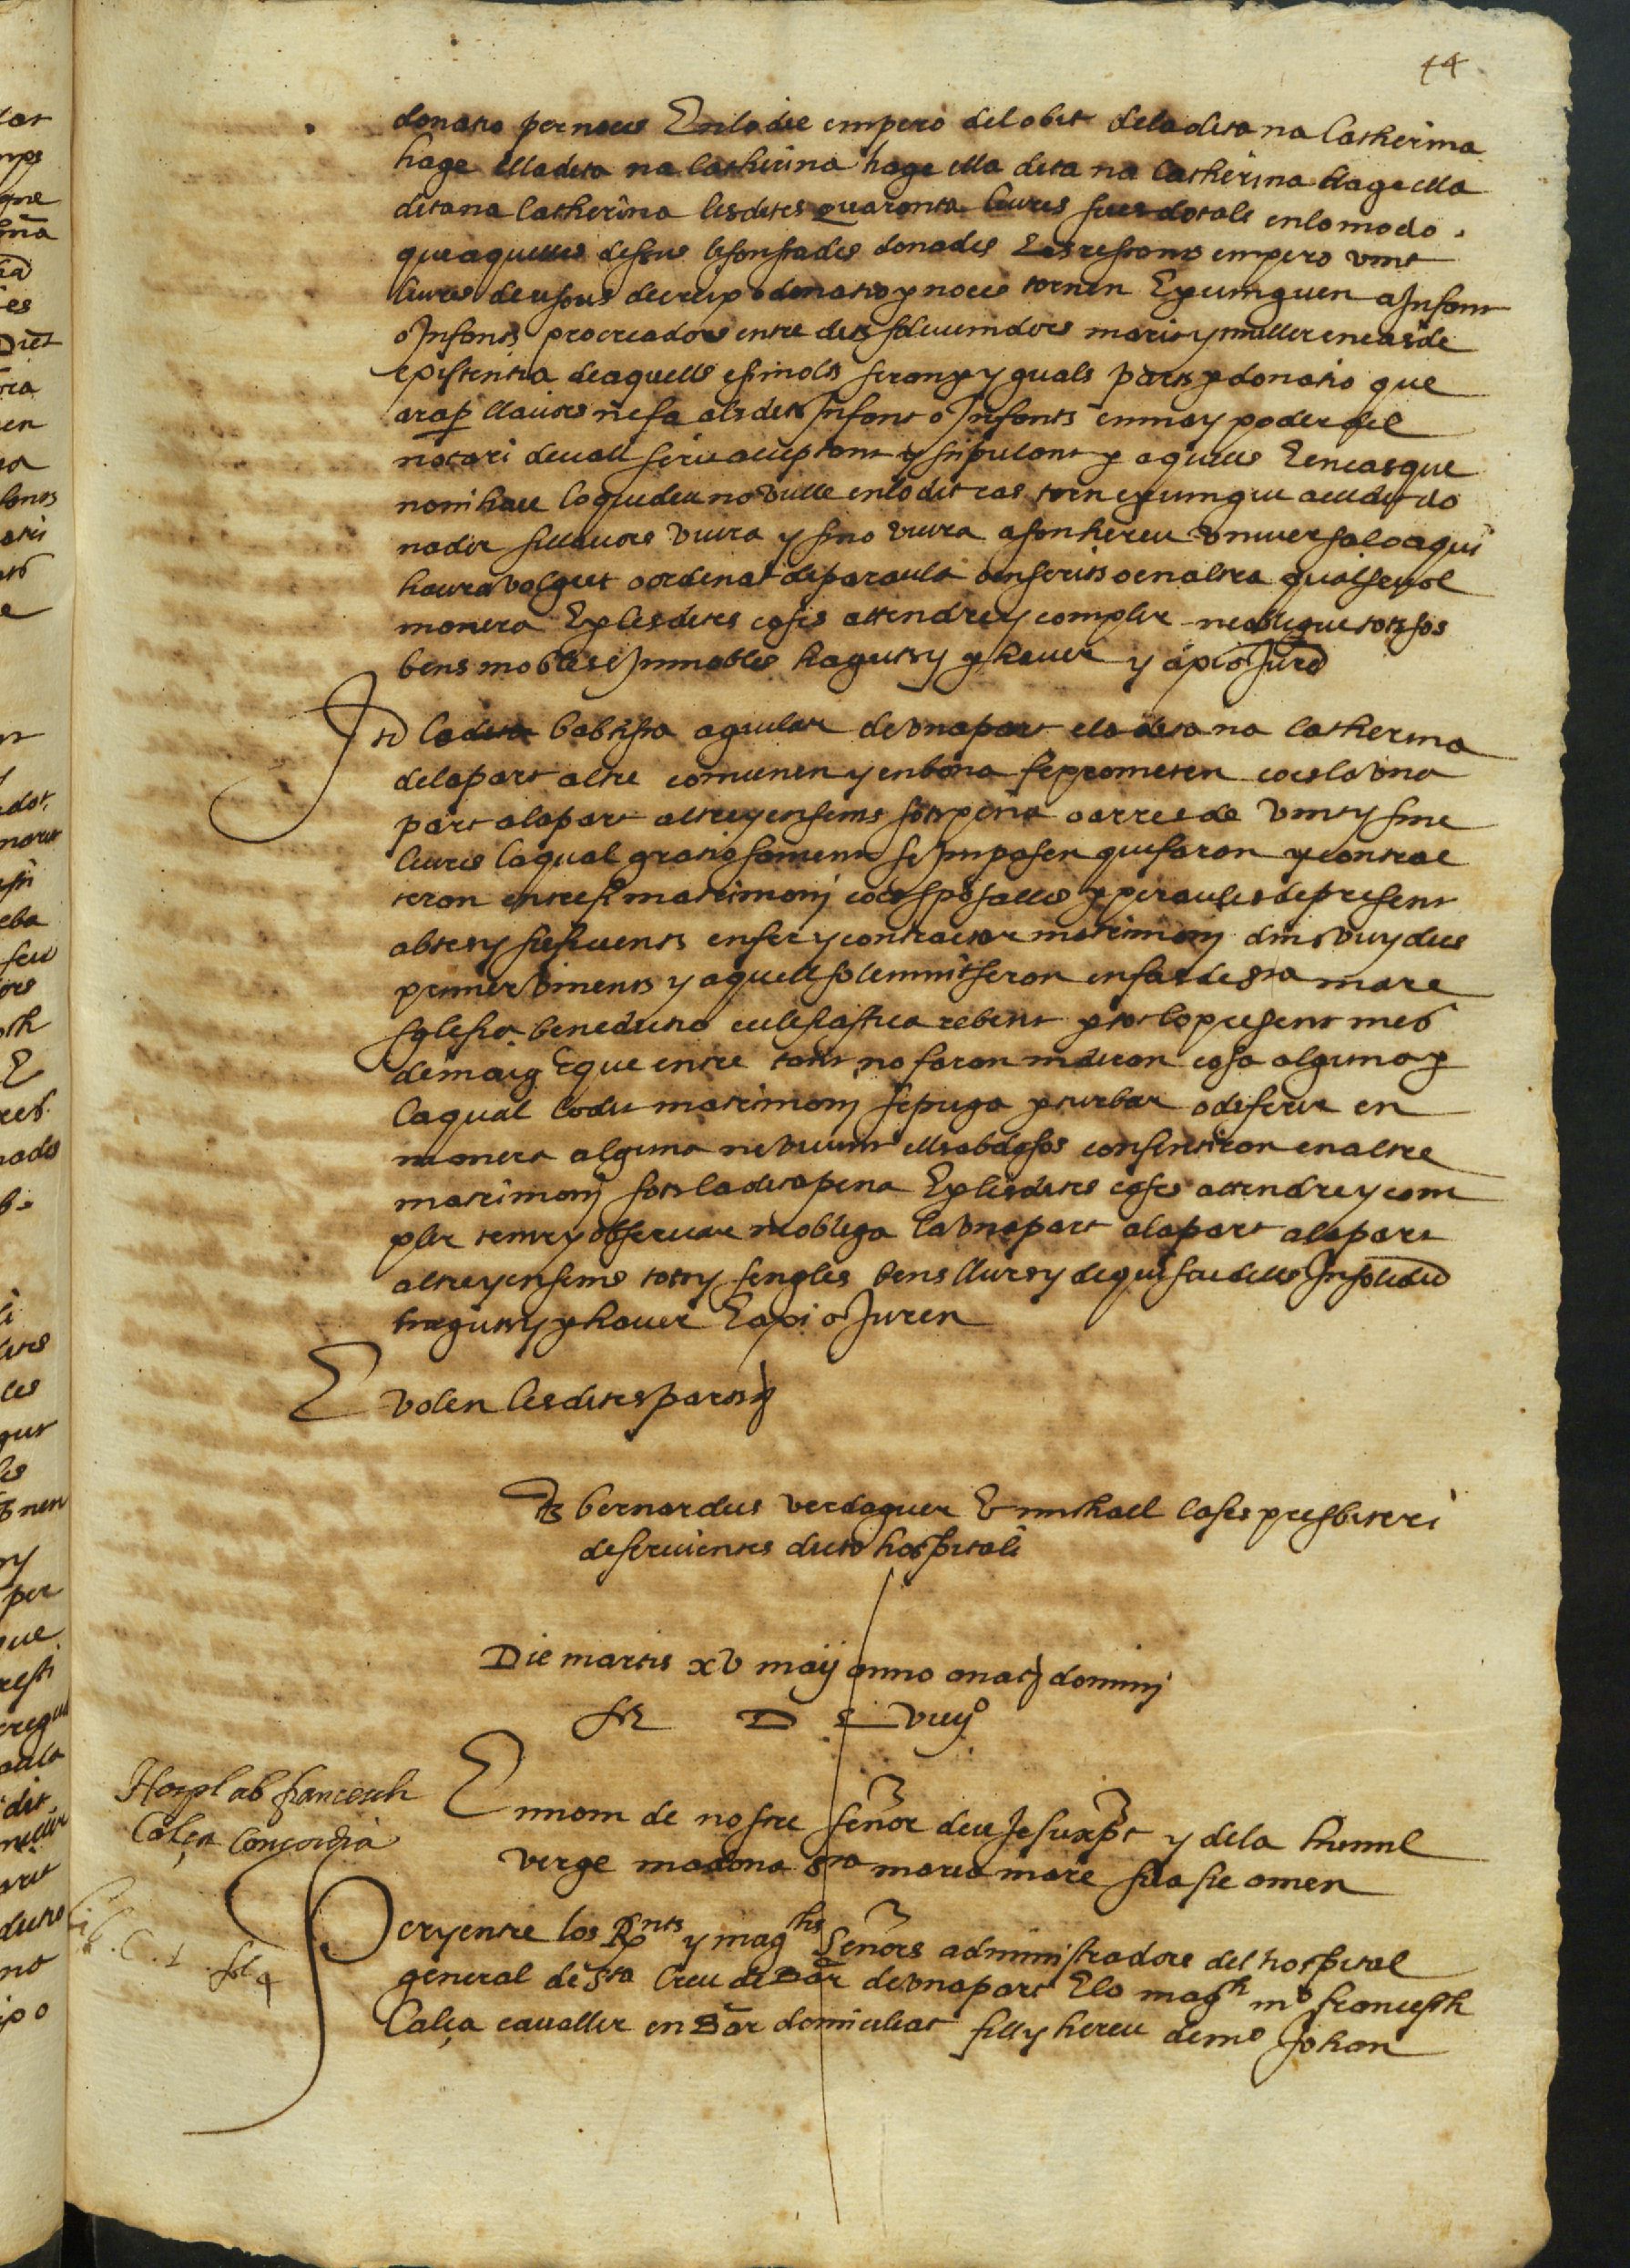 44
donatio per noces En lo die empero del obit de la dita na Catherina
hage ella dita na Catherina hage ella dita na Catherina hage ella
dita na Catherina les dites quaranta liures sues dotals en lo modo
que aquelles dessus les son stades donades Les restants empero vint
liures de esponsalici o donatio p noces tornen E p vinguen a Infant
o Infants procreadors entre dits sdeuenidors marit y muller en cas de
existentia de aquells e sino ls seran p yguals parts p donatio que
ara p llauors ne fa als dits Infant o Infants en ma y poder del
notari deuall scrit acceptant y stipulant p aquells E en cas que
non i haie lo que deu no vulle en lo dit cas torn e p vingue a ell dit do
nador si llauors viura y si no viura a son hereu vniuersal o a qui
haura volgut o ordenat de paraula o en scrits o en altra qualseuol
manera E p les dites coses attendre y complir ne obligue tots sos
bens mobles e Immobles haguts y p hauer y axi o Jura
Itm lo dit babtista aguilar de vna part e la dita na Catherina
de la part altre conuenen y en bona fe prometen ço es la vna
part a la part altre y ensems sots pena o arres de vint y sinc
liures la qual gratiosament se Imposen que faran y contrac
taran entre si matrimoni ço es sposalles p paraules de present
abtes y suficients en fer y contractar matrimoni dins vuy dies
primer vinents y aquell solemnitseran en fas de sta mare
sglesia benedictio ecclesiastica rebent p tot lo present mes
de maig E que entre tant no faran ni diran cosa alguna p
la qual lo dit matrimoni se puga p turbar o diferir en
manera alguna ne viuint ells abdosos consentiran en altre
matrimoni sots la dita pena E p les dites coses attendre y com
plir tenir y obseruar ne obliga la vna part a la part a la part
altre y ensems tots y sengles bens llurs y de quiscu dells Insolidu
haguts y p hauer E axi o Juren
E volen les dites parts
ts bernardus verdaguer E michael Cases presbiteri
deseruientes dicto hospitali
Die martis xv maij anno a nat dominj
M D L viiijo
Hospl ab francesch
Calça Concordia
Lib. C. 1. fol 4
En nom de nostre señor deu Jesuxpt y de la humil
verge madona sta maria mare sua sie amen
Per y entre los Rnts y maghs señors administradors del hospital
general de sta Creu de Bar de vna part E lo magh mo francesch
Calça caualler en Bar domiciliat fill y hereu de mo Johan